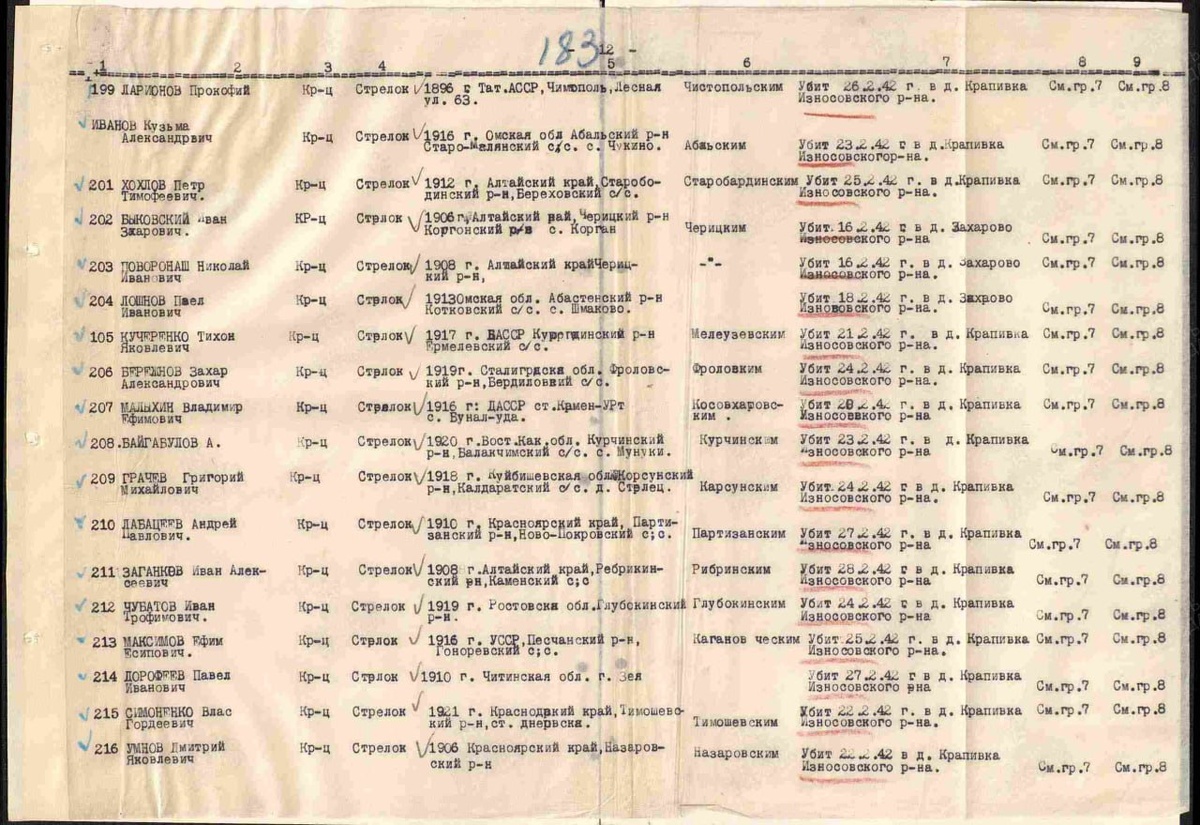 183
- 12 -
1 2 3 4 5 6 7 8 9
199 ЛАРИОНОВ Прокофий Кр-ц Стрелок 1896 г Тат.АССР,Чимтополь,Лесная Чистопольским Убит 26.2.42 г. в д. Крапивка См.гр.7 См.гр.8
ул. 63. Износовского р-на.
ИВАНОВ Кузьма
Александрвич Кр-ц Стрелок 1916 г. Омская обл Абальский р-н Абаьским Убит 23.2.42 г в д.Крапивка См.гр.7 См.гр.8
Старо-Малянский с/с. с. Чукино. Износовскогор-на.
201 ХОХЛОВ Петр Кр-ц Стрелок 1912 г. Алтайский край,Старобо- Старобардинским Убит 25.2.42 г. в д.Крапивка См.гр.7 См.гр.8
Тимофеевич. динский р-н,Береховский с/с. Износовского р-на.
202 БЫКОВСКИЙ Иван КР-ц Стрлок 1906г,Алтайский рай,Черицкий р-н Черицким Убит 16.2.42 г в д. Захарово См.гр.7 См.гр.8
Зхарович. Коргонский с. Корган Износовского р-на
203 ПОВОРОНАШ Николай Кр-ц Стрелок 1908 г. Алтайский крайЧериц- -"- Убит 16.2.42 г. в д. Захарово См.гр.7 См.гр.8
Иванович кий р-н, Износовского р-на
204 ЛОШНОВ Павел Кр-ц Стрлок 1913Омская обл. Абастенский р-н Убит 18.2.42 г. в д. Захрово См.гр.7 См.гр.8
Иванович Котковский с/с. с. Шмаково. Износовского р-на.
105 КУЧЕРЕНКО Тихон Кр-ц Стрелок 1917 г. БАССР р-н Мелеузевским Убит 21.2.42 г. в д. Крапивка См.гр.7 См.гр.8
Яковлевич Ермелевский с/с. Износовского р-на.
206 БЕРЕЖНОВ Захар Кр-ц Стрелок 1919г. Сталигрдска обл. Фроловс- Фроловким Убит 24.2.42 г. в д. Крапивка См.гр.7 См.гр.8
Александрович кий р-н,Бердиловний с/с. Износовского р-на
207 МАЛЫХИН Владимир Кр-ц Стрелок 1916 г: ДАССР ст.Крмен-УРт Косовхаровс- Убит 20.2.42 г. в д. Крапивка См.гр.7 См.гр.8
Ефимович с. Бунал-уда. ким . Износовского р-на
208.БАЙГАБУЛОВ А. Кр-ц Стрелок 1920 г.Вост.Как,обл. Курчинский Курчинским Убит 23.2.42 г. в д. Крапивка См.гр.7 См.гр.8
р-н,Балакчимский с/с. с. Мунуки. Износовского р-на
209 ГРАЧЕВ Григорий Кр-ц Стрелок 1918 г. Куйбишевская обл.Корсунский Карсунским Убит 24.2.42 г. в д. Крапивка См.гр.7 См.гр.8
Михайлович р-н,Калдаратский с/с. д. Стрлец. Износовского р-на
210 ЛАБАЦЕЕВ Андрей Кр-ц Стрелок 1910 г. Красноярский край, Парти- Партизанским Убит 27.2.42 г. в д. Крапивка См.гр.7 См.гр.8
Павлович. занский р-н,Ново-Покровский с;с. Износовского р-на
211 ЗАГАНКОВ Иван Алек- Кр-ц Стрелок 1908 г.Алтайский край,Ребрикин- Рибринским Убит 28.2.42 г. в д. Крапивка См.гр.7 См.гр.8
сеевич ский рн,Каменский с;с Износовского р-на
212 ЧУБАТОВ Иван Кр-ц Стрелок 1919 г. Ростовска обл.Глубокинский Глубокинским Убит 24.2.42 г в д. Крапивка См.гр.7 См.гр.8
Трофимович. р-н. Износовского р-на
213 МАКСИМОВ Ефим Кр-ц Стрлок 1916 г. УССР,Песчанский р-н, Каганов ческим Убит 25.2.42 г. в д. Крапивка См.гр.7 См.гр.8
Есипович. Гоноревский с;с. Износовского р-на.
214 ДОРОФЕЕВ Павел Кр-ц Стрлок 1910 г. Читинская обл. г. Зея Убит 27.2.42 г в д. Крапивка См.гр.7 См.гр.8
Иванович Износовского рна
215 СИМОНЕНКО Влас Кр-ц Стрелок 1921 г. Краснодркий край,Тимошевс- Тимошевским Убит 22.2.42 г. в д. Крапивка См.гр.7 См.гр.8
Гордеевич кий р-н,ст. днервска. Износовского р-на.
216 УМНОВ Дмитрий Кр-ц Стрелок 1906 Красноярский край,Назаров- Назаровским Убит 22.2.42 в д. Крапивка См.гр.7 См.гр.8
Яковлевич ский р-н Износовского р-на.